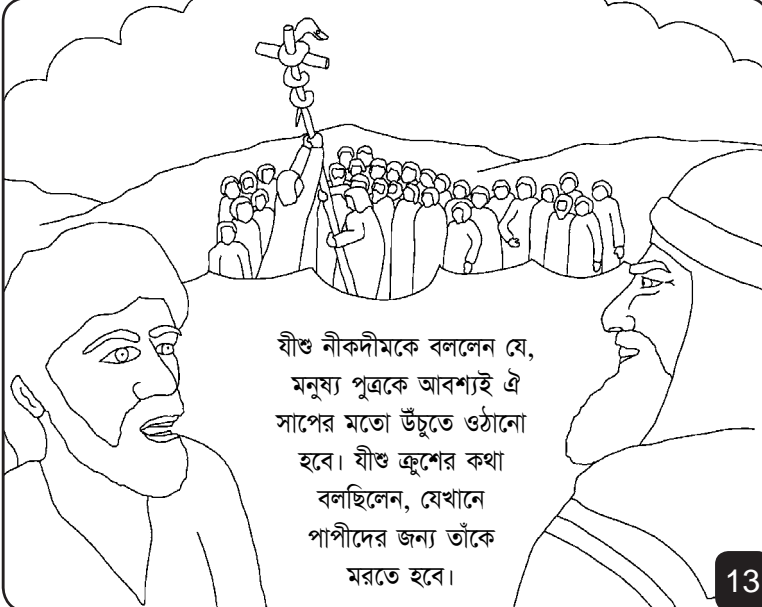 যীশু নীকদীমকে বললেন যে,
মনুষ্য পুত্রকে আবশ্যই ঐ
সাপের মতো উঁচুতে ওঠানো
হবে। যীশু ক্রুশের কথা
বলছিলেন, যেখানে
পাপীদের জন্য তাঁকে
মরতে হবে।
13